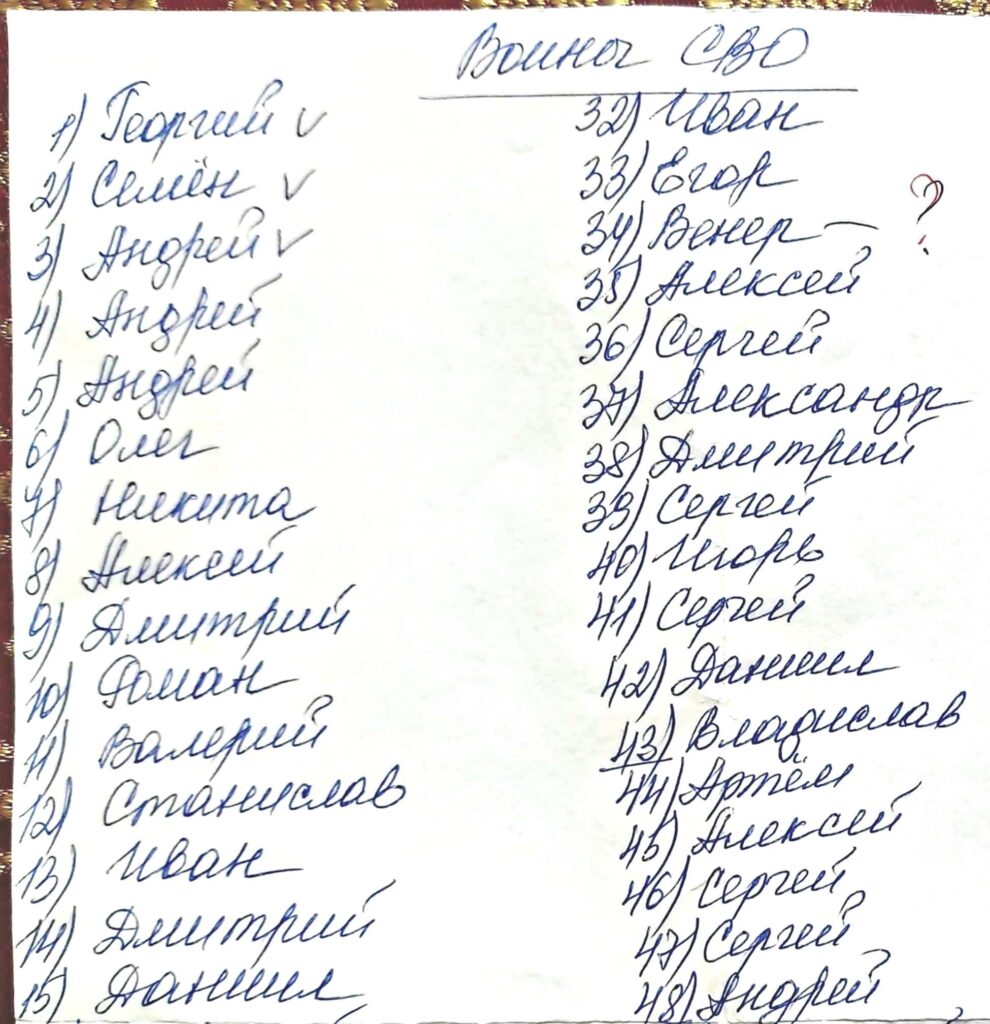 Воины СВО
1) Георгий ✓
2) Семён ✓
3) Андрей ✓
4) Андрей
5) Андрей
6) Олег
7) Никита
8) Алексей
9) Дмитрий
10) Роман
11) Валерий
12) Станислав
13) Иван
14) Дмитрий
15) Даниил
32) Иван
33) Егор
34) Венер — ?
35) Алексей
36) Сергей
37) Александр
38) Дмитрий
39) Сергей
40) Игорь
41) Сергей
42) Даниил
43) Владислав
44) Артём
45) Алексей
46) Сергей
47) Сергей
48) Андрей